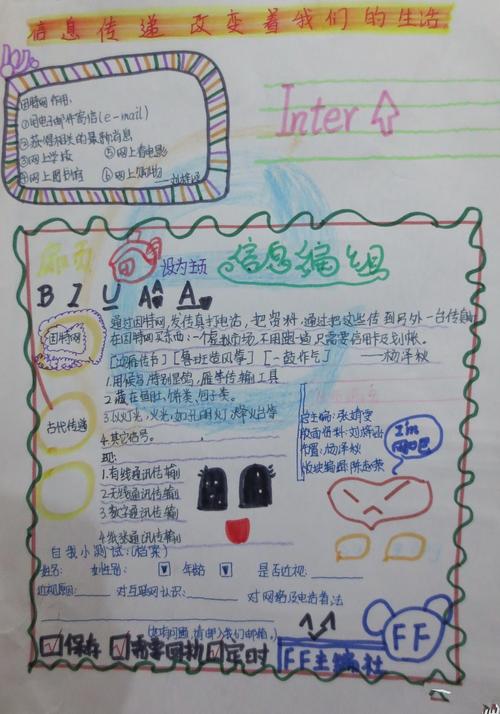 信息传递 改变着我们的生活
因特网作用:
①用电子邮件寄信(e-mail)
②获得相关的最新消息
③网上学校 ⑤网上看电影
④网上图书馆 ⑥网上购物
Inter
设为主页
信息编组
B I U A A
通过因特网,发传真打电话,把资料,通过把这些传到另外一台传真
因特网
在因特网买东西:一个虚拟市场,不用出墙,只需要信用卡及划帐。
[边雁传书] [鲁班造风筝] [一鼓作气] ——杨泽秋
1.用候鸟,特别是鸽、雁等传输工具
2.藏在画肚,饼类,包子类。
古代传递
3.以灯光,火光,如孔明灯 烽火台等
4.其它信号。
总主编:张婧雯
布置:杨泽秋
I'm
现:
1.有线通讯传输
2.无线通讯传输
3.数字通讯传输
4.纸装通讯传输
自我小测试:(档案)
姓名: 性别: 年龄 是否近视:
近视原因: 对互联网认识: 对网络及电话看法
(如有问题,请邮入我们邮箱。)
保存 需要同机 定时
FF主编社
FF